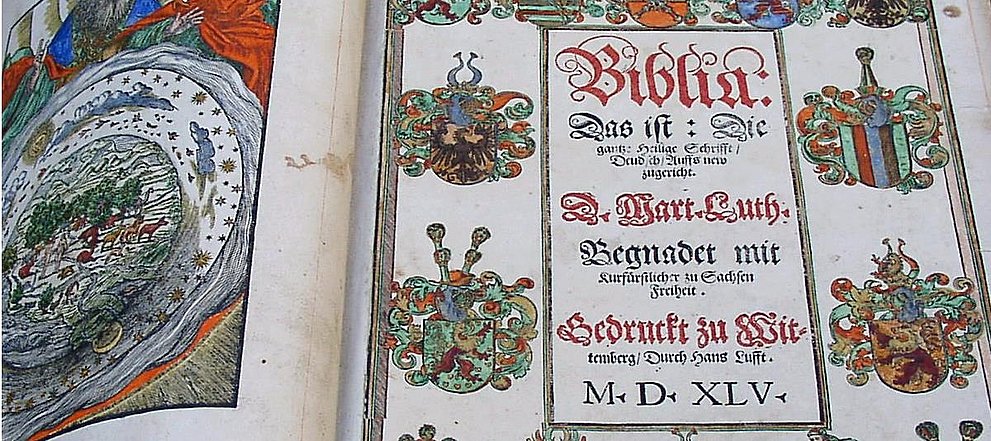 Biblia:
Das ist: Die
gantze Heilige Schrifft/
Deudsch/Auffs new
zugericht.
D. Mart. Luth.
Begnadet mit
Kurfürstlicher zu Sachsen
Freiheit.
Gedruckt zu Wit-
temberg/Durch Hans Lufft.
M. D. XLV.